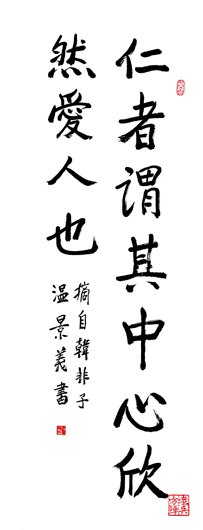 仁者謂其中心欣
然愛人也
摘自韓非子
温景義書